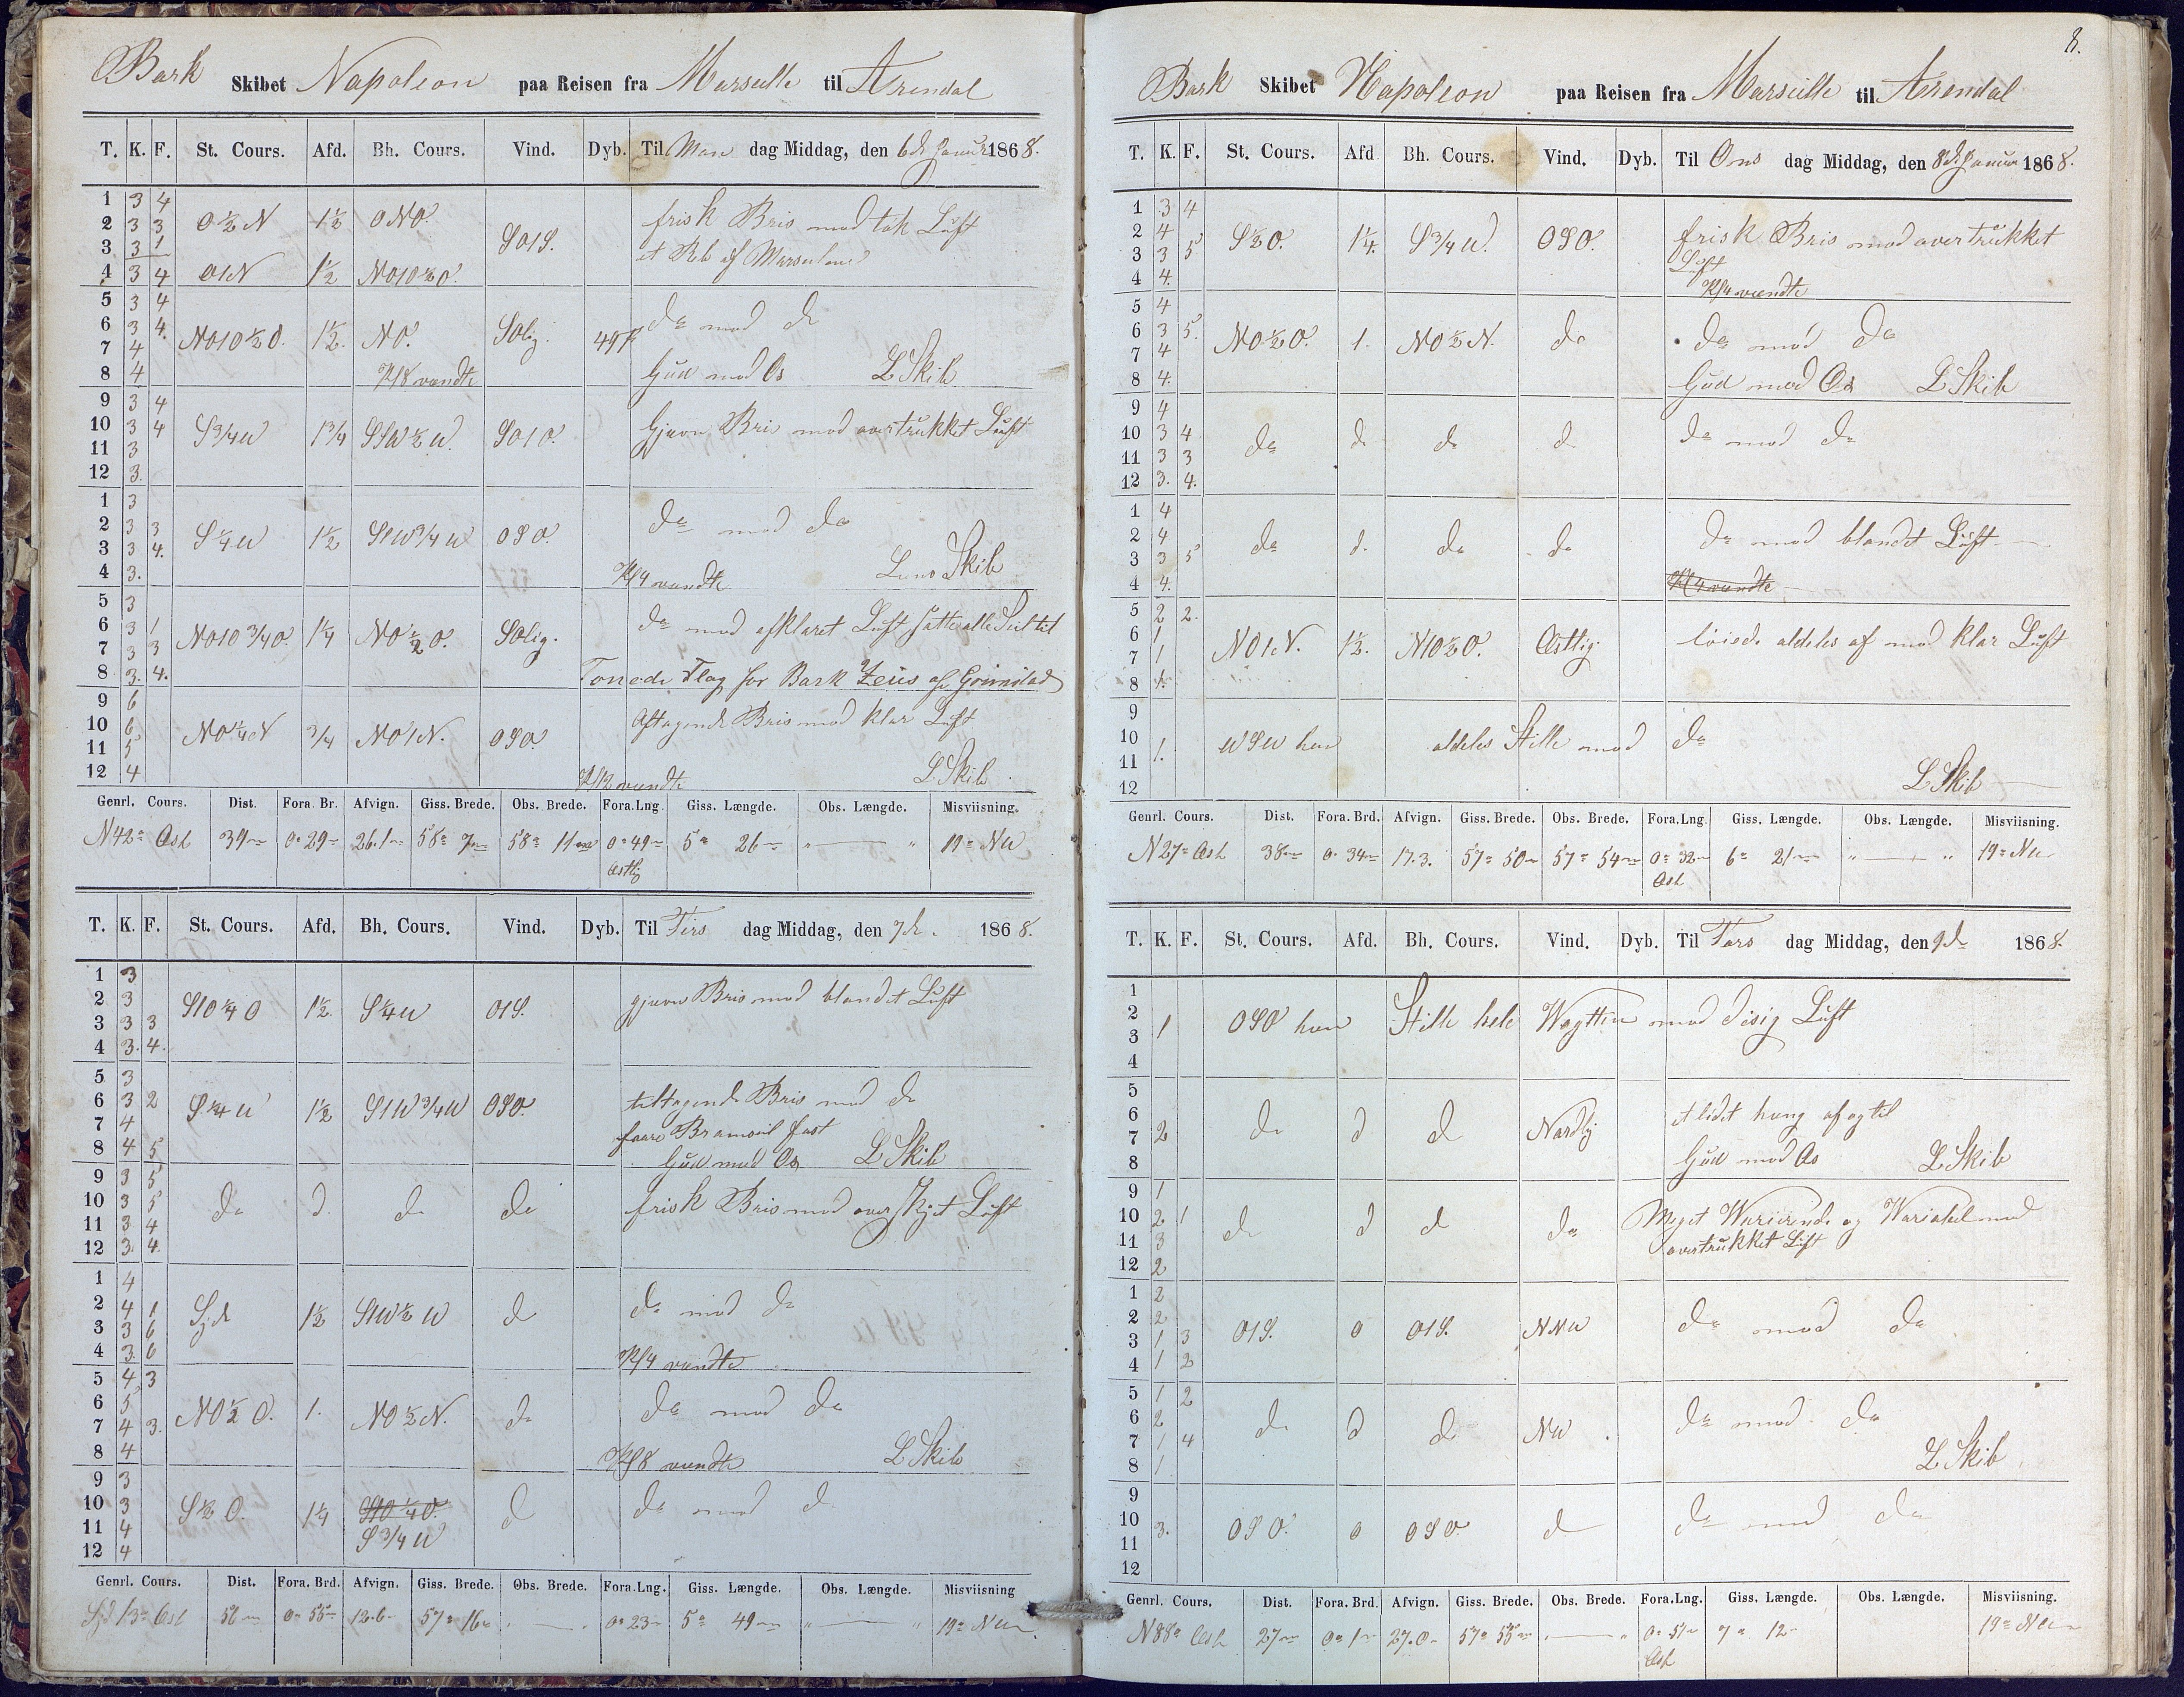 Bark Skibet Napoleon paa Reisen fra Marseille til Arendal
T. K. F. St. Cours. Afd. Bh. Cours. Vind. Dyb. Til Man dag Middag, den 6de Januar 1868.
1 3 4
2 3 3 O½N 1½ ONO. frisk Bris med tyk Luft
3 3 1 SO1S. et Reb af Merseilene
4 3 4 O1N 1½ NO1O½O.
5 3 4
6 3 4. NO1O½O. 1½. NO. SOlig. do med do
7 4
8 4 Kl 8 vendte Gud med Os L Skib
9 3 4
10 3 4 S¾W 1¾ SSW½W. SO1O. Gjævn Bris med overtrukket Luft
11 3
12 3.
1 3
2 3 3 S¼W 1½ S1W¾W OSO. do med do
3 3 4.
4 3. Kl 4 vendte Lens Skib
5 3
6 3 1 NO1O¾O. 1¼ NO½O. SOlig. do med afklaret Luft satte alle Seil til
7 3 3
8 3. 4. Tonede Flag for Bark Zeus af Grimstad
9 6
10 6 NO¼N ¾ NO1N. OSO. Aftagende Bris med klar Luft
11 5
12 4 Kl 12 vendte L Skib
Genrl. Cours. Dist. Fora. Br. Afvign. Giss. Brede. Obs. Brede. Fora. Lng. Giss. Længde. Obs. Længde. Misviisning.
N 42° Ost 39 0° 29 26.1 58° 7 58° 11 0° 49 Østlig 5° 26 " — " 19° NW
T. K. F. St. Cours. Afd. Bh. Cours. Vind. Dyb. Til Tirs dag Middag, den 7de. 1868.
1 3
2 3 S1O¼O 1½. S¼W O1S. gjævn Bris med blandet Luft
3 3 3
4 3. 4.
5 3
6 3 2 S¼W 1½ S1W¾W OSO. tiltagende Bris med do
7 4 Bramseil fast
8 4 5 Gud med Os L Skib
9 3 5
10 3 5 do d. do do frisk Bris med overskyet Luft
11 3 4
12 3. 4.
1 4
2 4 1 Syd 1½ S1W½W d do med do
3 3 6
4 3. 6 Kl 4 vendte
5 4 3
6 5 NO½O. 1. NO½N. do do med do
7 4 3.
8 4 Kl 8 vendte L Skib
9 3
10 3 S½O. 1¼ S1O¼O. d do med d
11 4 S¾W
12 4
Genrl. Cours. Dist. Fora. Brd. Afvign. Giss. Brede. Obs. Brede. Fora. Lng. Giss. Længde. Obs. Længde. Misviisning
Syd 13° Ost 56 0° 55 12.6 57° 16 " — " 0° 23 5° 49 " — " 19° NW
8.
Bark Skibet Napoleon paa Reisen fra Marseille til Arendal
T. K. F. St. Cours. Afd Bh. Cours. Vind. Dyb. Til Ons dag Middag, den 8de Januar 1868.
1 3 4
2 4 S½O. 1¼. S¾W. OSO. frisk Bris med overtrukket
3 3 5 Luft
4 4. Kl 4 vendte
5 4
6 3 5. NO½O. 1. NO½N. do do med do
7 4
8 4. Gud med Os L Skib
9 4
10 3 4 do d do d do med do
11 3 3
12 3. 4.
1 4
2 4 do d. do do do med blandet Luft
3 3 5
4 4. Kl 4 vendte
5 2 2.
6 1 NO1N. 1½. N1O½O. Østlig løiede aldeles af med klar Luft
7 1
8 1.
9
10 1. WSW hen aldeles Stille med do
11
12 L Skib
Genrl. Cours. Dist. Fora. Brd. Afvign. Giss. Brede. Obs. Brede. Fora. Lng. Giss. Længde. Obs. Længde. Misviisning.
N 27° Ost 38 0° 34 17.3. 57° 50 57° 54 0° 32 Ost 6° 21 " — " 19° NW
T. K. F. St. Cours. Afd. Bh. Cours. Vind. Dyb. Til Tors dag Middag, den 9de 1868.
1
2 1 OSO hen Stille hele Wagtten med disig Luft
3
4
5
6 2 do d d Nordlig et lidet hang af og til
7
8 Gud med Os L Skib
9 1
10 2 1 do d d do Meget Warierende og Wariabel med
11 3 overtrukket Luft
12 2
1 2
2 2 O1S. 0 O1S. NNW do med do
3 1 3
4 1 2
5 1 2
6 2 do d do NW do med do
7 1 4
8 1 L Skib
9
10 3. OSO. 0 OSO d do med do
11
12
Genrl. Cours. Dist. Fora. Brd. Afvign. Giss. Brede. Obs. Brede. Fora. Lng. Giss. Længde. Obs. Længde. Misviisning.
N 88° Ost 27 0° 1 27.0 57° 55 " — " 0° 51 Ost 7° 12 19° NW